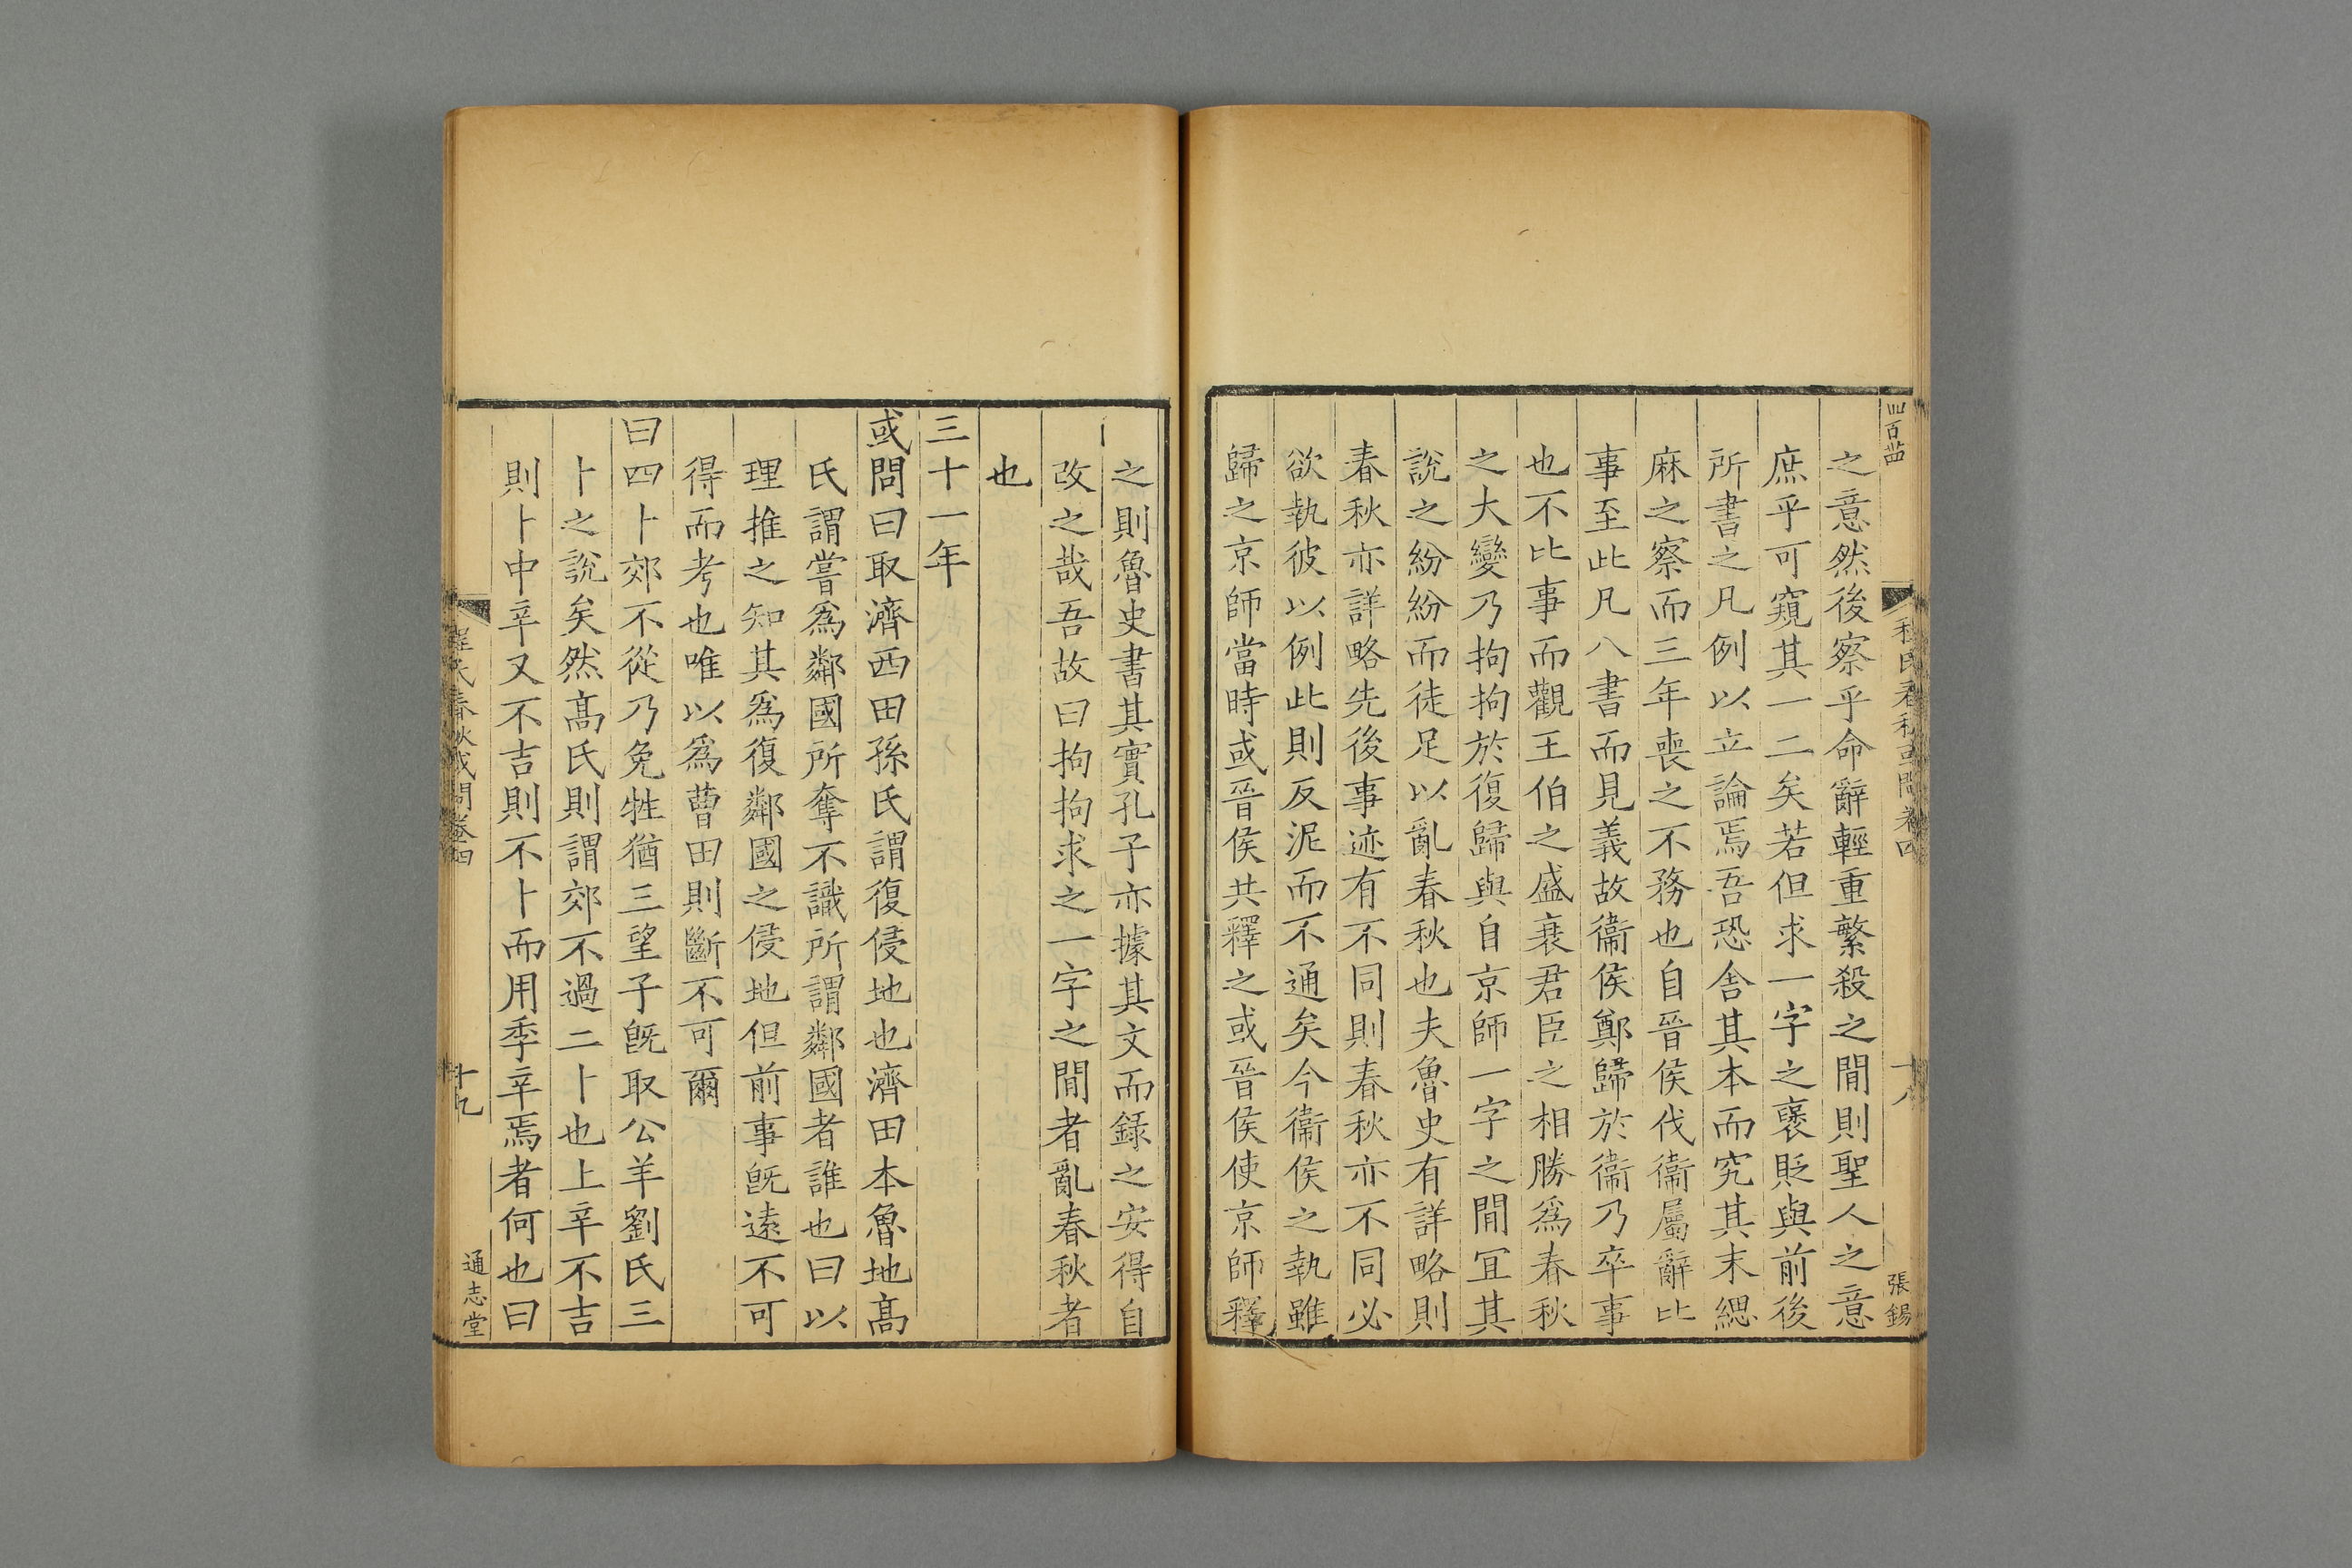 之意然後察乎命辭輕重繁殺之閒則聖人之意
庶乎可窺其一二矣若但求一字之襃貶與前後
所書之凡例以立論焉吾恐舍其本而究其末緦
麻之察而三年喪之不務也自晉侯伐衞屬辭比
事至此凡八書而見義故衞侯鄭歸於衞乃卒事
也不比事而觀王伯之盛衰君臣之相勝爲春秋
之大變乃拘拘於復歸與自京師一字之閒宜其
說之紛紛而徒足以亂春秋也夫魯史有詳略則
春秋亦詳略先後事迹有不同則春秋亦不同必
欲執彼以例此則反泥而不通矣今衞侯之執雖
歸之京師當時或晉侯共釋之或晉侯使京師釋
之則魯史書其實孔子亦據其文而錄之安得自
改之哉吾故曰拘拘求之一字之閒者亂春秋者
也
三十一年
或問曰取濟西田孫氏謂復侵地也濟田本魯地髙
氏謂嘗爲鄰國所奪不識所謂鄰國者誰也曰以
理推之知其爲復鄰國之侵地但前事旣遠不可
得而考也唯以爲曹田則斷不可爾
曰四卜郊不從乃免牲猶三望子旣取公羊劉氏三
卜之說矣然髙氏則謂郊不過二卜也上辛不吉
則卜中辛又不吉則不卜而用季辛焉者何也曰
程氏春秋或問卷四
十九
通志堂
十八
張錫